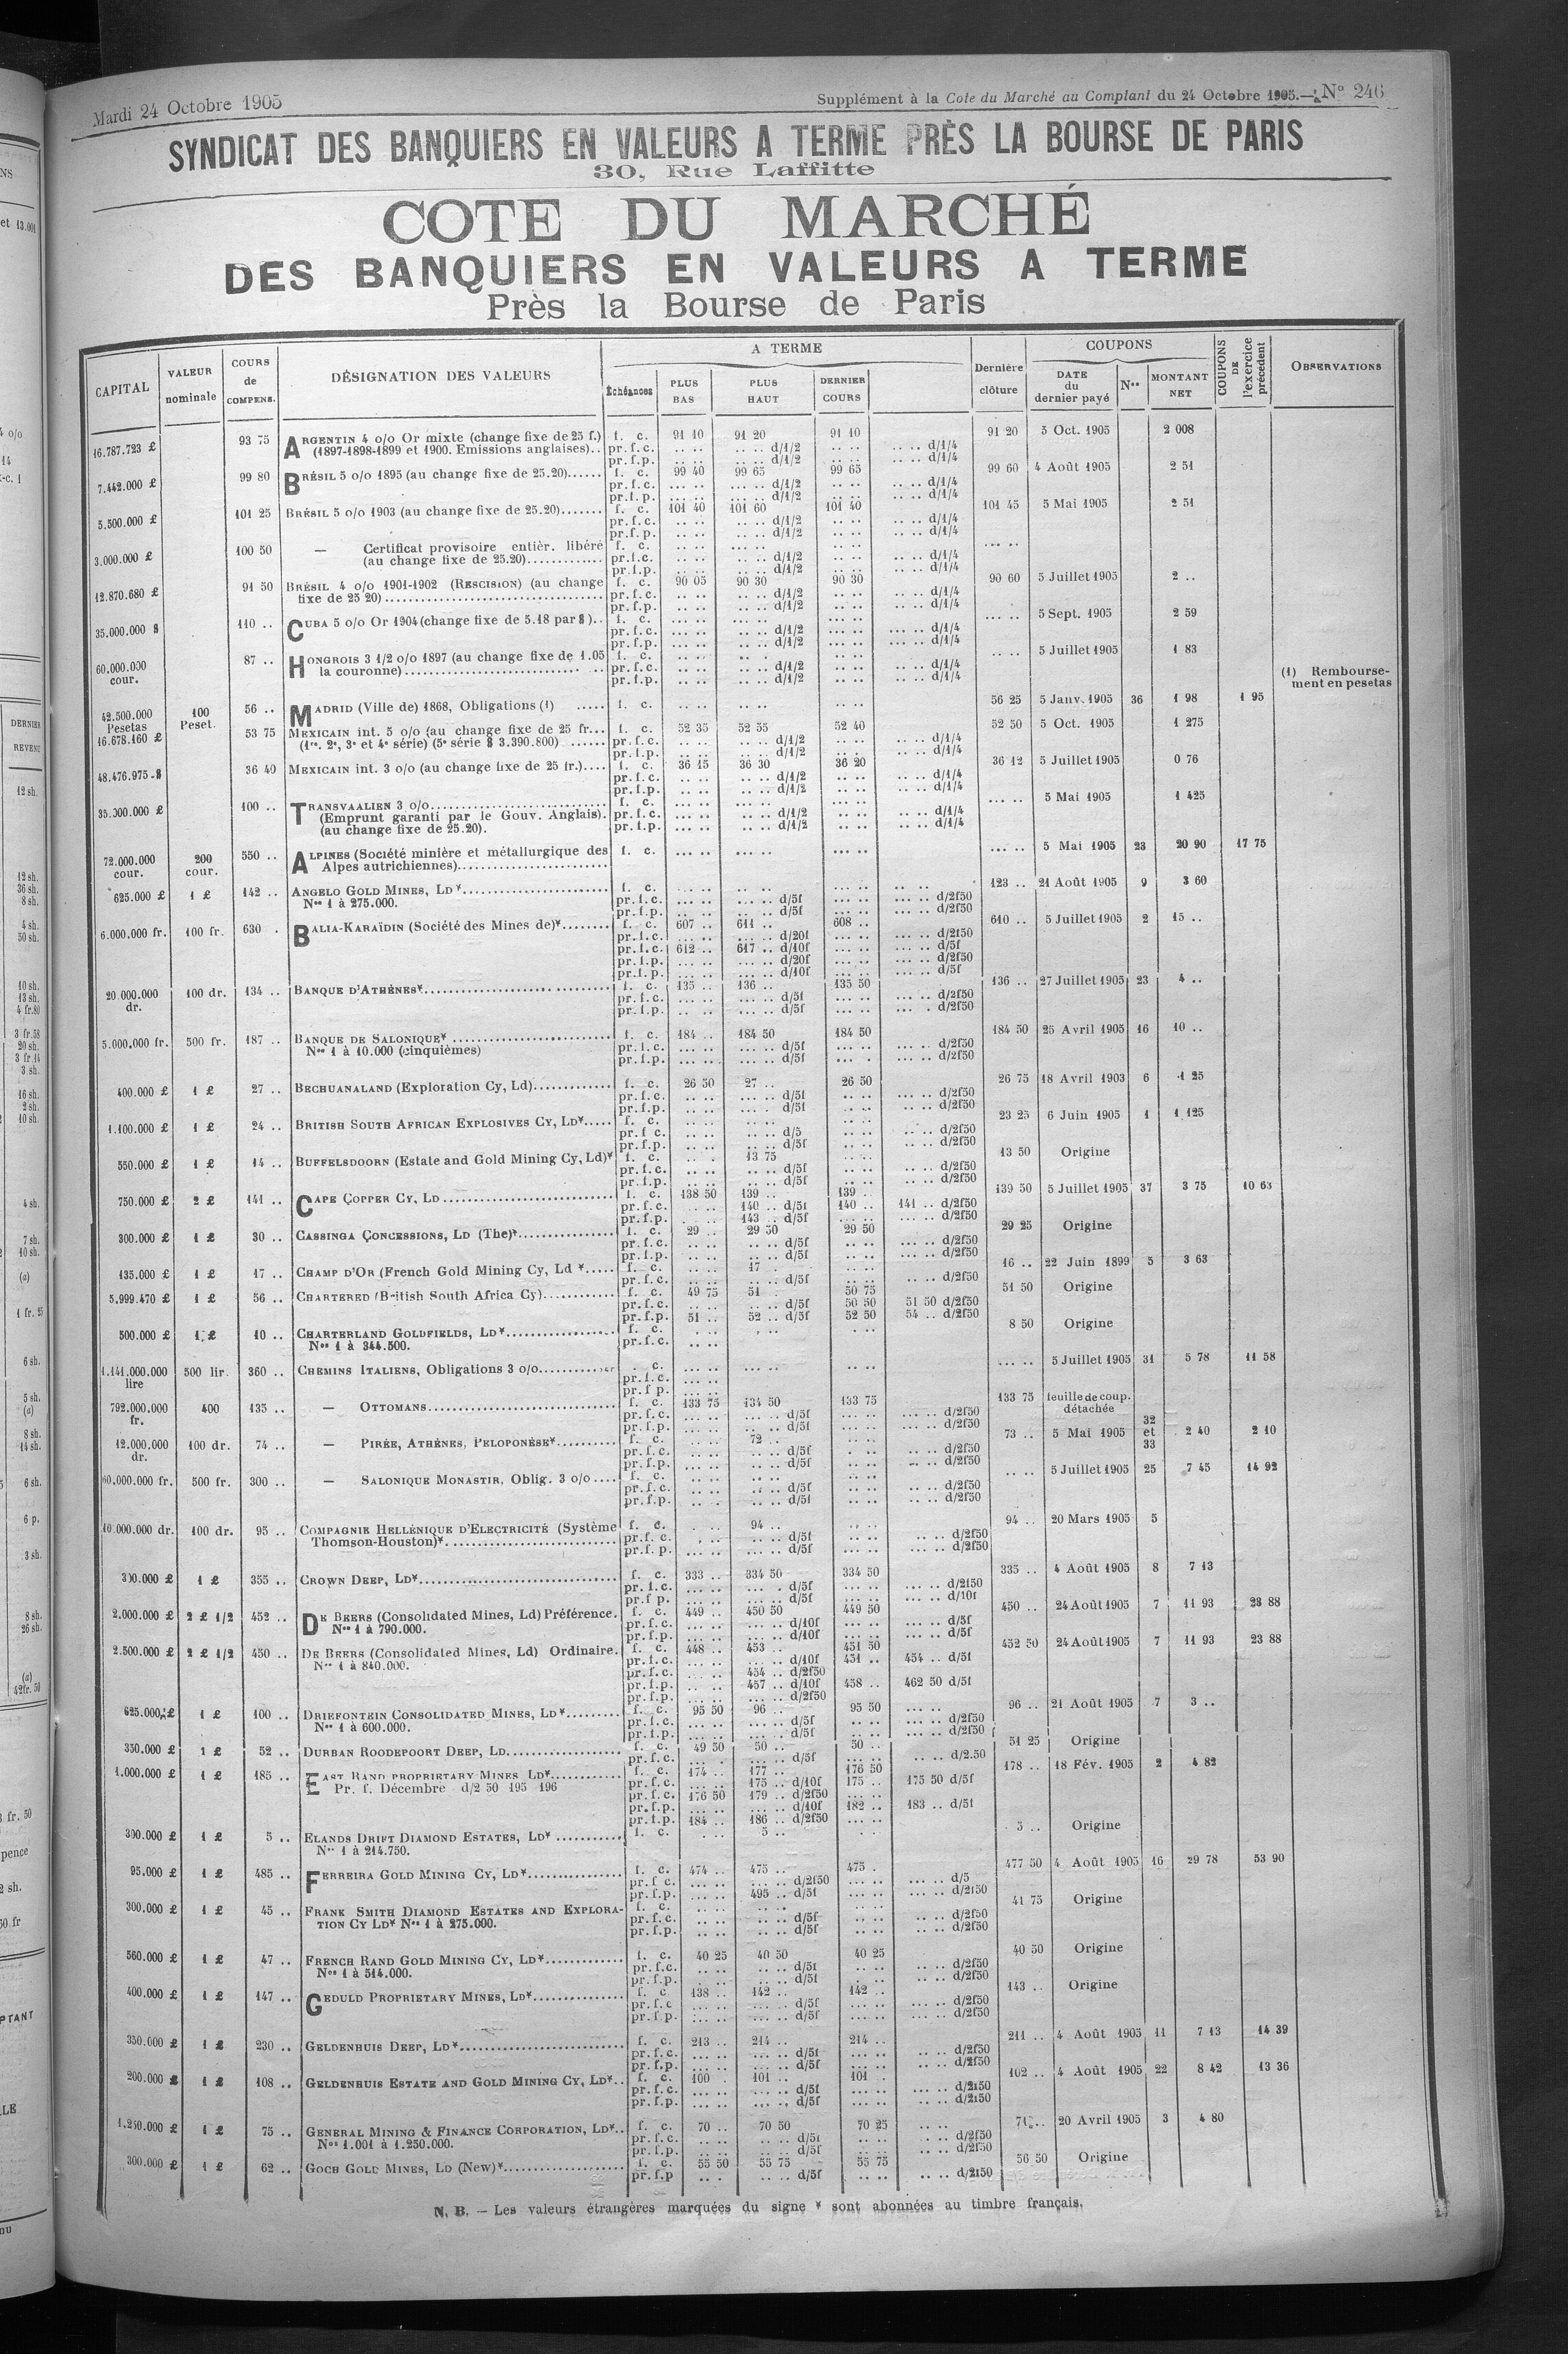 Mardi 24 Octobre 1905
Supplément à la Cote du Marché au Comptant du 24 Octobre 1905. — N° 246
SYNDICAT DES BANQUIERS EN VALEURS A TERME PRÈS LA BOURSE DE PARIS
30, Rue Laffitte
COTE DU MARCHÉ
DES BANQUIERS EN VALEURS A TERME
Près la Bourse de Paris
CAPITAL | VALEUR nominale | COURS de COMPENS. | DÉSIGNATION DES VALEURS | A TERME | Échéances | PLUS BAS | PLUS HAUT | DERNIER COURS | Dernière clôture | COUPONS | DATE du dernier payé | Nos | MONTANT NET | COUPONS DE l'exercice précédent | OBSERVATIONS
16.787.723 £ 93 75 ARGENTIN 4 o/o Or mixte (change fixe de 25 f.) f. c. 91 10 91 20 91 10 91 20 3 Oct. 1905 2 008
(1897-1898-1899 et 1900. Emissions anglaises).. pr.f.c. .. .. .. .. d/1/2 .. .. .. .. d/1/4
pr.f.p. .. .. .. .. d/1/2 .. .. .. .. d/1/4
7.442.000 £ 99 80 BRÉSIL 5 o/o 1895 (au change fixe de 25.20)...... f. c. 99 40 99 65 99 65 99 60 4 Août 1905 2 51
pr.f.c. ... .. .. .. d/1/2 .. .. .. .. d/1/4
pr.f.p. ... .. .. .. d/1/2 .. .. .. .. d/1/4
5.500.000 £ 101 25 BRÉSIL 5 o/o 1903 (au change fixe de 25.20)....... f. c. 101 40 101 60 101 40 101 45 5 Mai 1905 2 51
pr.f.c. .. .. .. .. d/1/2 .. .. .. .. d/1/4
pr.f.p. .. .. .. .. d/1/2 .. .. .. .. d/1/4
3.000.000 £ 100 50 — Certificat provisoire entièr. libéré f. c. .. .. ... .. .. .. ... ..
(au change fixe de 25.20)............ pr.f.c. .. .. .. .. d/1/2 .. .. .. .. d/1/4
pr.f.p. .. .. .. .. d/1/2 .. .. .. .. d/1/4
12.870.680 £ 91 50 BRÉSIL 4 o/o 1901-1902 (RESCISION) (au change f. c. 90 05 90 30 90 30 90 60 5 Juillet 1905 2 ..
fixe de 25 20)................................... pr.f.c. .. .. .. .. d/1/2 .. .. .. .. d/1/4
pr.f.p. .. .. .. .. d/1/2 .. .. .. .. d/1/4
35.000.000 $ 110 .. CUBA 5 o/o Or 1904 (change fixe de 5.18 par $).. f. c. ... .. ... .. ... .. ... .. 5 Sept. 1905 2 59
pr.f.c. ... .. .. .. d/1/2 ... .. ... .. d/1/4
pr.f.p. ... .. .. .. d/1/2 ... .. ... .. d/1/4
60.000.000 cour. 87 .. HONGROIS 3 1/2 o/o 1897 (au change fixe de 1.05 f. c. .. .. .. .. .. .. .. .. 5 Juillet 1905 1 83
la couronne)................................ pr.f.c. .. .. .. .. d/1/2 .. .. .. .. d/1/4
pr.f.p. .. .. .. .. d/1/2 .. .. .. .. d/1/4
(1) Rembourse-
ment en pesetas
42.500.000 Pesetas 100 Peset. 56 .. MADRID (Ville de) 1868, Obligations (1) ..... f. c. .. .. .. .. .. .. 56 25 5 Janv. 1905 36 1 98 1 95
16.678.160 £ 53 75 MEXICAIN int. 5 o/o (au change fixe de 25 fr... f. c. 52 35 52 55 52 40 52 50 5 Oct. 1905 1 275
(1re, 2e, 3e et 4e série) (5e série $ 3.390.800) ...... pr.f.c. .. .. .. .. d/1/2 .. .. .. .. d/1/4
pr.f.p. .. .. .. .. d/1/2 .. .. .. .. d/1/4
48.476.975 $ 36 40 MEXICAIN int. 3 o/o (au change fixe de 25 fr.).... f. c. 36 15 36 30 36 20 36 12 5 Juillet 1905 0 76
pr.f.c. .. .. .. .. d/1/2 .. .. .. .. d/1/4
pr.f.p. .. .. .. .. d/1/2 .. .. .. .. d/1/4
35.000.000 £ 100 .. TRANSVAALIEN 3 o/o............................ f. c. ... .. ... .. ... .. ... .. 5 Mai 1905 1 425
(Emprunt garanti par le Gouv. Anglais). pr.f.c. ... .. .. .. d/1/2 .. .. .. .. d/1/4
(au change fixe de 25.20). pr.f.p. ... .. .. .. d/1/2 .. .. .. .. d/1/4
72.000.000 cour. 200 cour. 550 .. ALPINES (Société minière et métallurgique des f. c. ... .. ... .. ... .. ... .. 5 Mai 1905 23 20 90 17 75
Alpes autrichiennes)........................
625.000 £ 1 £ 142 .. ANGELO GOLD MINES, LD*....................... f. c. ... .. .. .. ... .. .. .. 123 .. 21 Août 1905 9 3 60
Nos 1 à 275.000. pr.f.c. ... .. ... .. d/5f ... .. ... .. d/2f50
pr.f.p. .. .. .. .. d/5f ... .. ... .. d/2f50
6.000.000 fr. 100 fr. 630 . BALIA-KARAÏDIN (Société des Mines de)*........ f. c. 607 .. 611 .. 608 .. 610 .. 5 Juillet 1905 2 15 ..
pr.f.c. ... .. ... .. d/20f ... .. ... .. d/2f50
pr.f.c. 612 .. 617 .. d/10f ... .. ... .. d/5f
pr.f.p. ... .. ... .. d/20f ... .. ... .. d/2f50
pr.f.p. ... .. ... .. d/10f ... .. ... .. d/5f
20.000.000 dr. 100 dr. 134 .. BANQUE D'ATHÈNES*............................. f. c. 135 .. 136 .. 135 50 136 .. 27 Juillet 1905 23 4 ..
pr.f.c. ... .. ... .. d/5f ... .. ... .. d/2f50
pr.f.p. ... .. ... .. d/5f ... .. ... . d/2f50
5.000.000 fr. 500 fr. 187 .. BANQUE DE SALONIQUE*.......................... f. c. 184 .. 184 50 184 50 184 50 25 Avril 1905 16 10 ..
Nos 1 à 10.000 (cinquièmes) pr.f.c. ... .. ... .. d/5f ... .. ... .. d/2f50
pr.f.p. ... .. ... .. d/5f ... . ... .. d/2f50
400.000 £ 1 £ 27 .. BECHUANALAND (Exploration Cy, Ld)............. f. c. 26 50 27 .. 26 50 26 75 18 Avril 1903 6 1 25
pr.f.c. .. .. ... .. d/5f .. .. ... .. d/2f50
pr.f.p. .. .. ... . d/5f .. .. .. .. d/2f50
1.100.000 £ 1 £ 24 .. BRITISH SOUTH AFRICAN EXPLOSIVES CY, LD*..... f. c. .. .. .. .. .. .. 23 25 6 Juin 1905 1 1 125
pr.f c. .. .. .. .. d/5 .. .. .. .. d/2f50
pr.f.p. .. .. .. .. d/5f .. .. .. .. d/2f50
550.000 £ 1 £ 14 .. BUFFELSDOORN (Estate and Gold Mining Cy, Ld)* f. c. .. . 13 75 .. .. 13 50 Origine
pr.f.c. .. .. .. .. d/5f .. .. .. .. d/2f50
pr.f.p. .. .. .. .. d/5f .. .. .. .. d/2f50
750.000 £ 2 £ 141 .. CAPE COPPER CY, LD............................ f. c. 138 50 139 .. 139 .. 139 50 5 Juillet 1905 37 3 75 10 63
pr.f.c. .. .. 140 .. d/5f 140 .. 141 .. d/2f50
pr.f.p. . .. 143 .. d/5f ... .. ... .. d/2f50
300.000 £ 1 £ 30 .. CASSINGA CONCESSIONS, LD (The)*............... f. c. 29 .. 29 50 29 50 29 25 Origine
pr.f.c. .. .. .. .. d/5f .. .. ... .. d/2f50
pr.f.p. .. .. .. .. d/5f .. .. ... .. d/2f50
135.000 £ 1 £ 17 .. CHAMP D'OR (French Gold Mining Cy, Ld *..... f. c. .. .. 17 . .. .. 16 .. 22 Juin 1899 5 3 63
pr.f.c. .. .. .. .. d/5f .. .. .. .. d/2f50
5.999.470 £ 1 £ 56 .. CHARTERED (British South Africa Cy)............ f. c. 49 75 51 . 50 75 51 50 Origine
pr.f.c. .. .. .. .. d/5f 50 50 51 50 d/2f50
pr.f.p. 51 .. 52 .. d/5f 52 50 54 .. d/2f50
500.000 £ 1 £ 10 .. CHARTERLAND GOLDFIELDS, LD*................... f. c. . .. . .. . .. 8 50 Origine
Nos 1 à 344.500. pr.f.c. .. ..
1.141.000.000 lire 500 lir. 360 .. CHEMINS ITALIENS, Obligations 3 o/o............ . c. ... .. ... .. .. .. ... .. 5 Juillet 1905 31 5 78 11 58
pr.f.c. ... ..
pr.f p. ... ..
792.000.000 fr. 400 135 .. — OTTOMANS.............................. f. c. 133 75 134 50 133 75 133 75 feuille de coup. détachée
pr.f.c. ... .. ... .. d/5f ... .. ... .. d/2f50
pr.f.p. ... .. .. .. d/5f ... .. ... .. d/2f50
12.000.000 dr. 100 dr. 74 .. — PIRÉE, ATHÈNES, PELOPONÈSE*.......... f. c. .. .. 72 .. .. .. 73 .. 5 Mai 1905 32 et 33 2 40 2 10
pr.f.c. .. .. ... .. d/5f . .. .. .. d/2f50
pr.f.p. .. .. ... .. d/5f .. .. .. .. d/2f50
60.000.000 fr. 500 fr. 300 .. — SALONIQUE MONASTIR, Oblig. 3 o/o.... f. c. .. .. .. .. .. .. .. .. 5 Juillet 1905 25 7 45 14 92
pr.f.c. .. .. .. .. d/5f .. .. .. .. d/2f50
pr.f.p. .. .. .. .. d/5f .. .. .. .. d/2f50
10.000.000 dr. 100 dr. 95 .. COMPAGNIE HELLÉNIQUE D'ELECTRICITÉ (Système f. c. . .. 94 .. .. .. 94 .. 20 Mars 1905 5
Thomson-Houston)*............................ pr.f.c. . .. .. .. d/5f .. .. .. .. d/2f50
pr.f.p. ... .. ... .. d/5f ... .. ... .. d/2f50
300.000 £ 1 £ 355 .. CROWN DEEP, LD*............................... f. c. 333 .. 334 50 334 50 335 .. 4 Août 1905 8 7 13
pr.f.c. ... .. ... . d/5f ... .. ... .. d/2f50
pr.f p. ... .. ... .. d/5f ... .. ... .. d/10f
2.000.000 £ 2 £ 1/2 452 .. DE BEERS (Consolidated Mines, Ld) Préférence. f. c. 449 .. 450 50 449 50 450 .. 24 Août 1905 7 11 93 23 88
Nos 1 à 790.000. pr.f.c. ... .. ... .. d/10f ... .. ... .. d/5f
pr.f.p. ... .. ... .. d/10f ... .. ... .. d/5f
2.500.000 £ 2 £ 1/2 450 .. DE BEERS (Consolidated Mines, Ld) Ordinaire. f. c. 448 .. 453 .. 451 50 452 50 24 Août 1905 7 11 93 23 88
Nos 1 à 840.000. pr.f.c. ... .. ... .. d/10f 451 .. 454 .. d/5f
pr.f.c. .. .. 454 .. d/2f50
pr.f.p. .. .. 457 .. d/10f 458 .. 462 50 d/5f
pr.f.p. ... .. ... .. d/2f50
625.000 £ 1 £ 100 .. DRIEFONTEIN CONSOLIDATED MINES, LD*......... f. c. 95 50 96 .. 95 50 ... .. 96 .. 21 Août 1905 7 3 ..
Nos 1 à 600.000. pr.f.c. ... .. ... .. d/5f .. .. ... .. d/2f50
pr.f.p. ... .. ... .. d/5f ... .. ... .. d/2f50
350.000 £ 1 £ 52 .. DURBAN ROODEPOORT DEEP, LD................... f. c. 49 50 50 .. 50 .. 51 25 Origine
pr.f.c. ... . ... .. d/5f ... .. .. .. d/2.50
1.000.000 £ 1 £ 185 .. EAST RAND PROPRIETARY MINES LD*............ f. c. 174 .. 177 .. 176 50 178 .. 18 Fév. 1905 2 4 82
Pr. f. Décembre d/2 50 195 196 pr.f.c. ... .. 175 .. d/10f 175 .. 175 50 d/5f
pr.f.c. 176 50 179 .. d/2f50 ... ..
pr.f.p. ... .. ... .. d/10f 182 .. 183 .. d/5f
pr.f.p. 184 .. 186 .. d/2f50 ... ..
300.000 £ 1 £ 5 .. ELANDS DRIFT DIAMOND ESTATES, LD*........... f. c. . .. 5 .. . . 5 .. Origine
Nos 1 à 214.750.
95.000 £ 1 £ 485 .. FERREIRA GOLD MINING CY, LD*................ f. c. 474 .. 475 .. 475 . 477 50 4 Août 1905 16 29 78 53 90
pr.f c. ... .. ... .. d/2f50 ... .. ... .. d/5
pr.f.p. ... .. 495 .. d/5f ... .. ... .. d/2f50
300.000 £ 1 £ 45 .. FRANK SMITH DIAMOND ESTATES AND EXPLORA- f. c. .. .. .. .. .. .. 41 75 Origine
TION CY LD* Nos 1 à 275.000. pr.f.c. .. .. .. .. d/5f .. .. .. .. d/2f50
pr.f.p. .. .. .. .. d/5f .. .. .. .. d/2f50
560.000 £ 1 £ 47 .. FRENCH RAND GOLD MINING CY, LD*............. f. c. 40 25 40 50 40 25 40 50 Origine
Nos 1 à 514.000. pr.f.c. .. .. .. .. d/5f .. .. .. .. d/2f50
pr.f.p. . .. .. .. d/5f . .. .. .. d/2f50
400.000 £ 1 £ 147 .. GEDULD PROPRIETARY MINES, LD*............... f. c. 138 .. 142 .. 142 .. 143 .. Origine
pr.f.c ... .. ... .. d/5f ... .. ... .. d/2f50
pr.f.p. ... .. ... .. d/5f ... .. ... .. d/2f50
350.000 £ 1 £ 230 .. GELDENHUIS DEEP, LD*......................... f. c. 213 .. 214 .. 214 .. 211 .. 4 Août 1905 11 7 13 14 39
pr.f.c. ... .. ... .. d/5f ... .. .. .. d/2f50
pr.f.p. ... .. ... .. d/5f ... .. .. .. d/2f50
200.000 £ 1 £ 108 .. GELDENHUIS ESTATE AND GOLD MINING CY, LD*.. f. c. 100 . 101 .. 101 . 102 .. 4 Août 1905 22 8 42 13 36
pr.f.c. ... .. ... .. d/5f ... .. ... .. d/2f50
pr.f.p. ... .. ... .. d/5f ... .. ... .. d/2f50
1.250.000 £ 1 £ 75 .. GENERAL MINING & FINANCE CORPORATION, LD*.. f. c. 70 .. 70 50 70 25 .. .. 71 .. 20 Avril 1905 3 4 80
Nos 1.001 à 1.250.000. pr.f.c. .. .. .. .. d/5f .. .. .. .. d/2f50
pr.f.p. .. .. .. .. d/5f .. .. .. .. d/2f50
300.000 £ 1 £ 62 .. GOCH GOLD MINES, LD (New)*................... f. c. 55 50 55 75 55 75 56 50 Origine
pr.f.p .. . .. .. d/5f .. .. .. .. d/2f50
N. B. — Les valeurs étrangères marquées du signe * sont abonnées au timbre français.